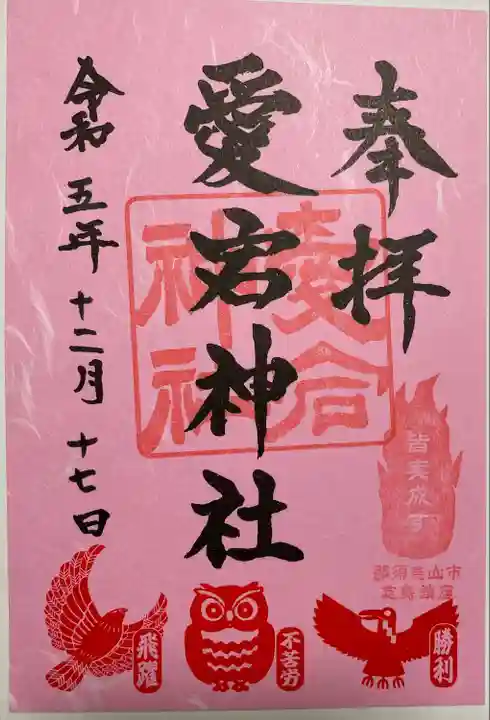 奉拝
愛宕神社
令和五年十二月十七日
愛宕
神社
皆実成す
那須烏山市
志鳥鎮座
勝利
不苦労
飛躍